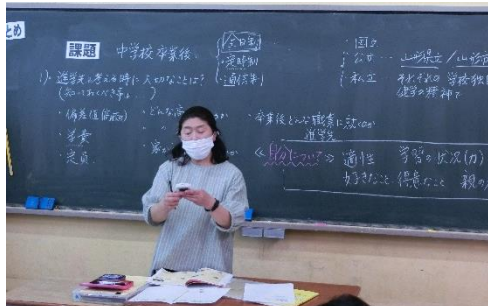 とめ
課題 中学校卒業後
全日制
定時制
通信制
国立
公立 … 山形県立／山形市
私立 それぞれの学校独
建学の精神で
1). 進学先を考える時に大切なことは?
(知っておくべき事
・偏差値
・どんな高
・卒業後どんな職業に就くのか
進学先
・学費
・定員
《自分について》 適性 学習の状況(力)
好きなこと、得意なこと 親の